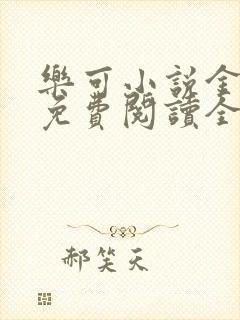 樂可小說全
免費閱讀全
郝笑天